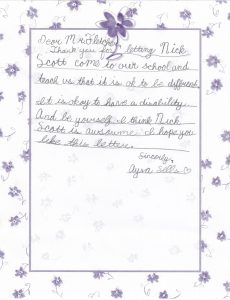 Dear Mr.
Thank you for letting Nick
Scott come to our school and
teach us that it is ok to be different.
It is okay to have a disability.
And be yourself. I think Nick
Scott is awsome. I hope you
like this letter.
Sincerely,